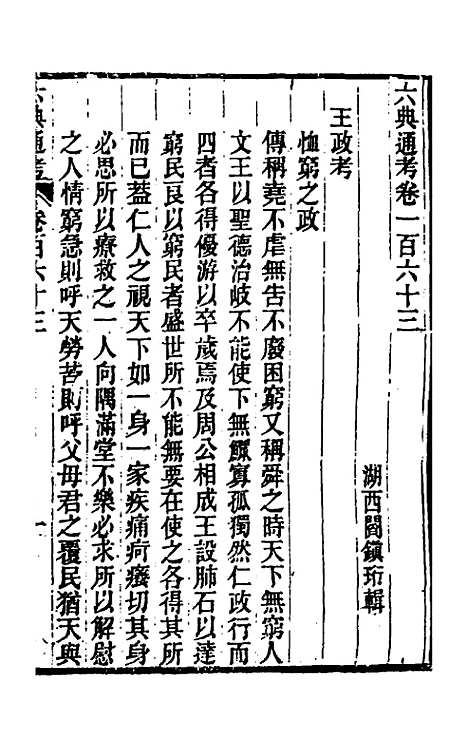 六典通考卷一百六十三
湖西閻鎮珩輯
王政考
恤窮之政
傳稱堯不虐無告不廢困窮又稱舜之時天下無窮人
文王以聖德治岐不能使下無鰥寡孤獨然仁政行而
四者各得優游以卒歲焉及周公相成王設肺石以達
窮民良以窮民者盛世所不能無要在使之各得其所
而已蓋仁人之視天下如一身一家疾痛疴癢切其身
必思所以療救之一人向隅滿堂不樂必求所以解慰
之人情窮急則呼天勞苦則呼父母君之覆民猶天與
六典通考
卷百六十三
一